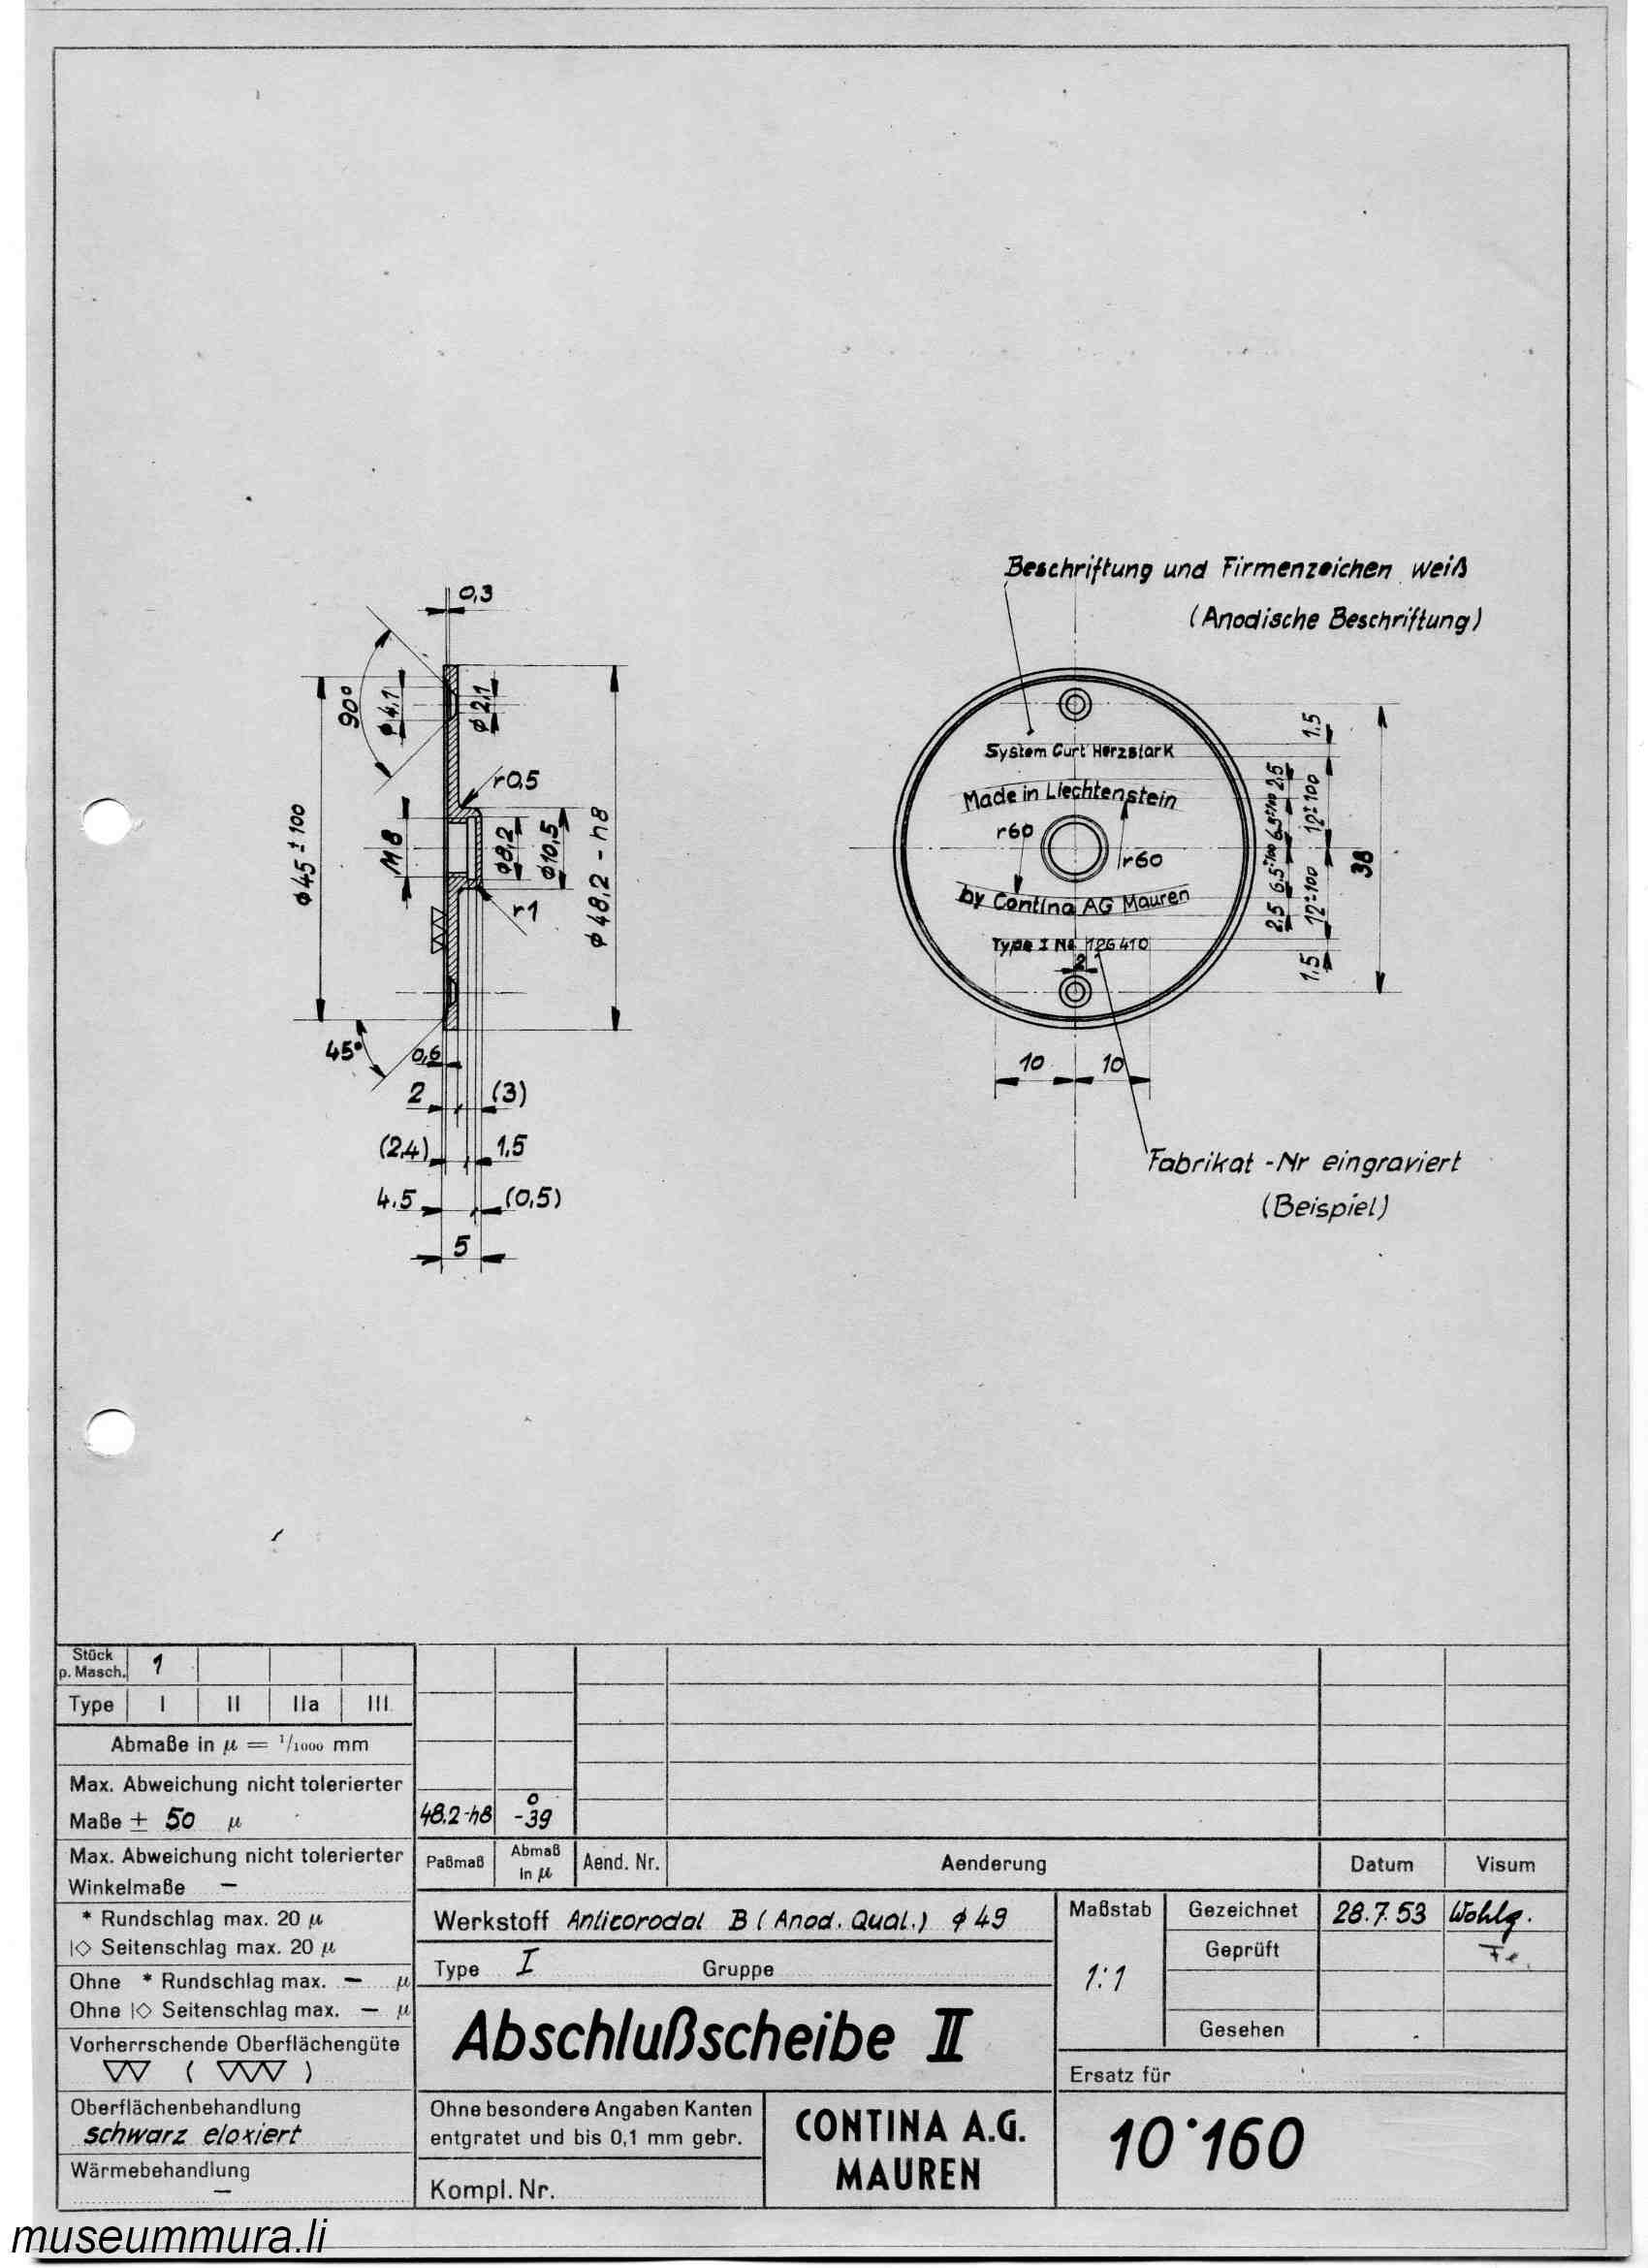 Beschriftung und Firmenzeichen weiß
(Anodische Beschriftung)
0,3
90°
ϕ 4,1
ϕ 2,1
ϕ 45 ± 100
r 0,5
M8
ϕ 8,2
ϕ 10,5
ϕ 48,2 - h8
r 1
45°
0,6
2
(3)
(2,4)
1,5
4,5
(0,5)
5
System Curt Herzstark
Made in Liechtenstein
r60
r60
by Contina AG Mauren
Type I No 126410
2
1,5
2,5
12±100
6,5±100
38
6,5±100
12±100
2,5
1,5
10
10
Fabrikat -Nr eingraviert
(Beispiel)
Stück p. Masch. 1
Type I II IIa III
Abmaße in µ = 1/1000 mm
Max. Abweichung nicht tolerierter
Maße ± 50 µ
Max. Abweichung nicht tolerierter
Winkelmaße –
* Rundschlag max. 20 µ
|◇ Seitenschlag max. 20 µ
Ohne * Rundschlag max. – µ
Ohne |◇ Seitenschlag max. – µ
Vorherrschende Oberflächengüte
▽▽ ( ▽▽▽ )
Oberflächenbehandlung
schwarz eloxiert
Wärmebehandlung
–
48.2-h8
0
-39
Paßmaß
Abmaß in µ
Aend. Nr.
Aenderung
Datum
Visum
Werkstoff Anticorodal B (Anod. Qual.) ϕ 49
Type I Gruppe
Abschlußscheibe II
Ohne besondere Angaben Kanten
entgratet und bis 0,1 mm gebr.
Kompl. Nr.
CONTINA A.G.
MAUREN
Maßstab
1:1
Gezeichnet 28.7.53 Wohlg.
Geprüft Fe.
Gesehen
Ersatz für
10·160
museummura.li